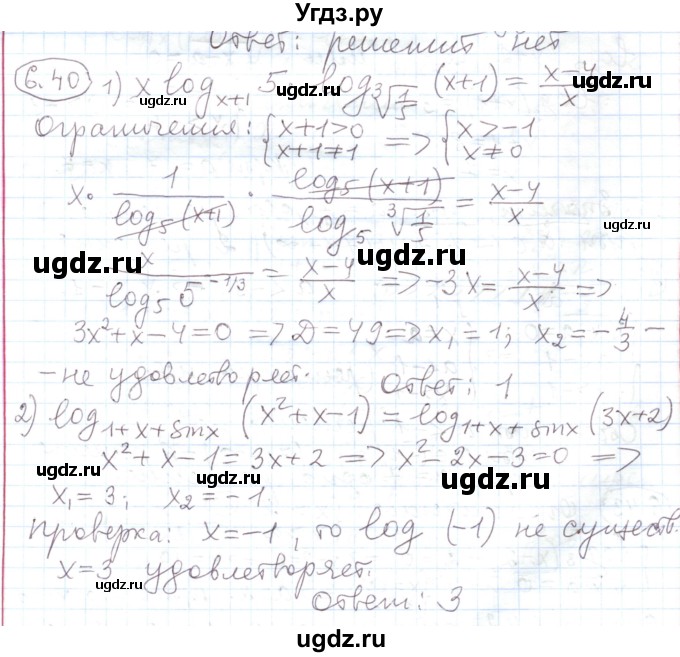 Угдз.ру
Ответ: решений нет
6.40 1) x log_{x+1} 5 · log_{∛(1/5)} (x+1) = (x-4)/x
Ограничения: { x+1>0 x+1≠1 => { x>-1 x≠0
x · 1/log₅(x+1) · log₅(x+1)/log₅ ∛(1/5) = (x-4)/x
ugdz.ru ugdz.ru ugdz.ru
x/log₅5^{-1/3} = (x-4)/x => -3x = (x-4)/x =>
3x²+x-4=0 => D=49 => x₁=1; x₂=-4/3 -
- не удовлетворяет. Ответ: 1
ugdz.ru
2) log_{1+x+sinx} (x²+x-1) = log_{1+x+sinx} (3x+2)
x²+x-1=3x+2 => x²-2x-3=0 =>
ugdz.ru
x₁=3; x₂=-1.
Проверка: x=-1, то log (-1) не существ.
ugdz.ru
x=3 удовлетворяет.
Ответ: 3
ugdz.ru
ugdz.ru